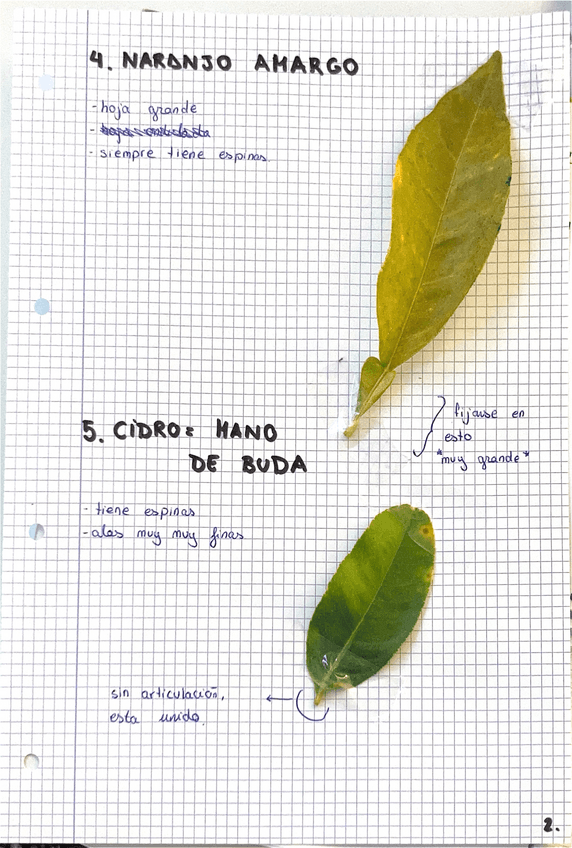 4. NARANJO AMARGO
- hoja grande
-
- siempre tiene espinas.
fijause en
esto
*muy grande*
5. CIDRO = MANO
DE BUDA
- tiene espinas
- alas muy muy finas
sin articulación,
esta unido.
2.